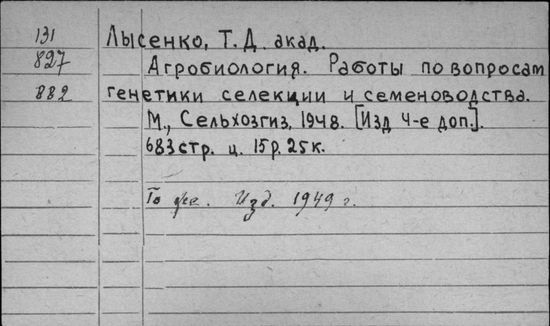 131 Лысенко, Т.Д. акад.
827 Агробиология. Работы по вопросам
882 генетики селекции и семеноводства.
М., Сельхозгиз, 1948. [Изд 4-е доп.].
683 стр. ц. 15 р. 25 к.
То же. Изд. 1949 г.